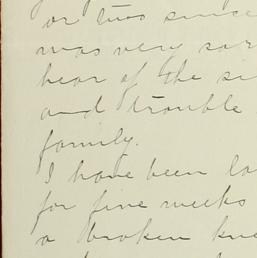 or two since
was very sor
hear of the si
and trouble
family.
I have been la
for five weeks
a broken kne